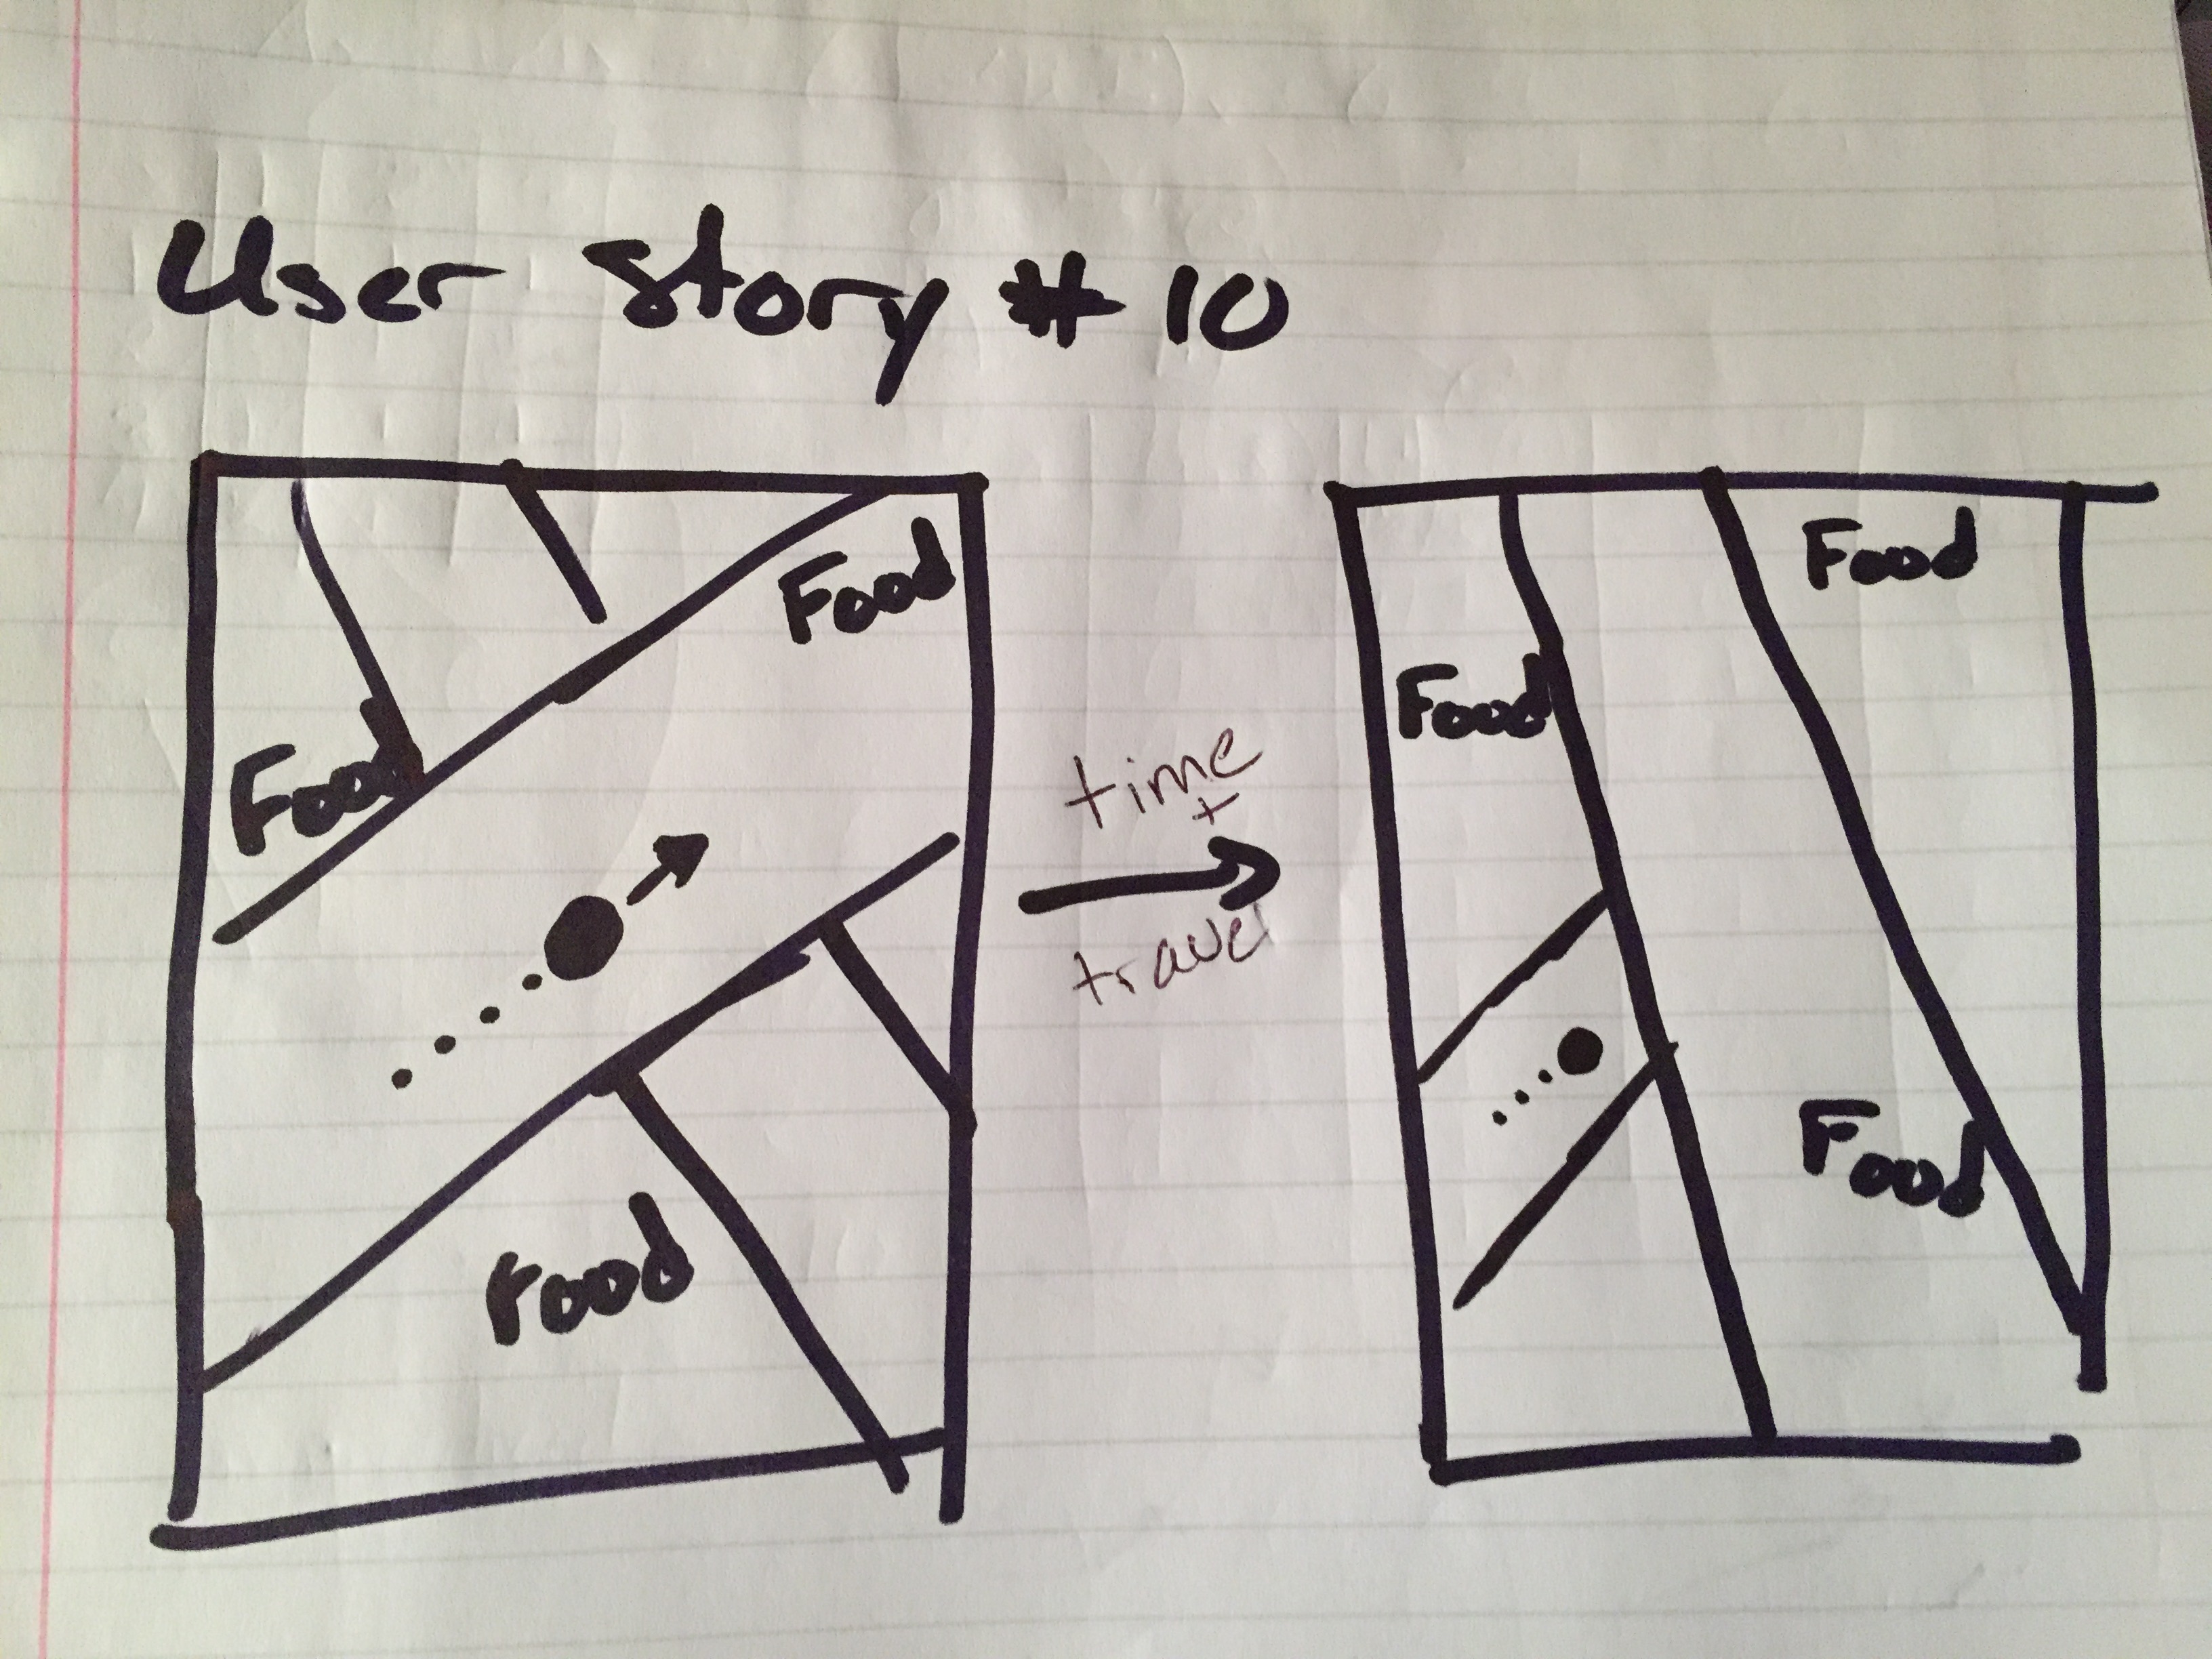 User Story # 10
Food
Food
Food
time
+
travel
Food
Food
Food